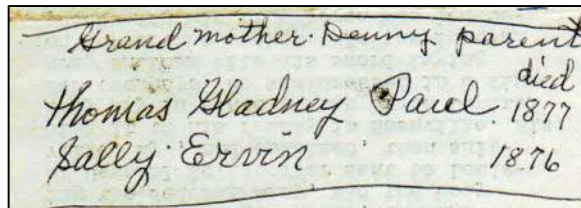 Grand mother Denny parent
died
Thomas Gladney Paul 1877
Sally Ervin 1876